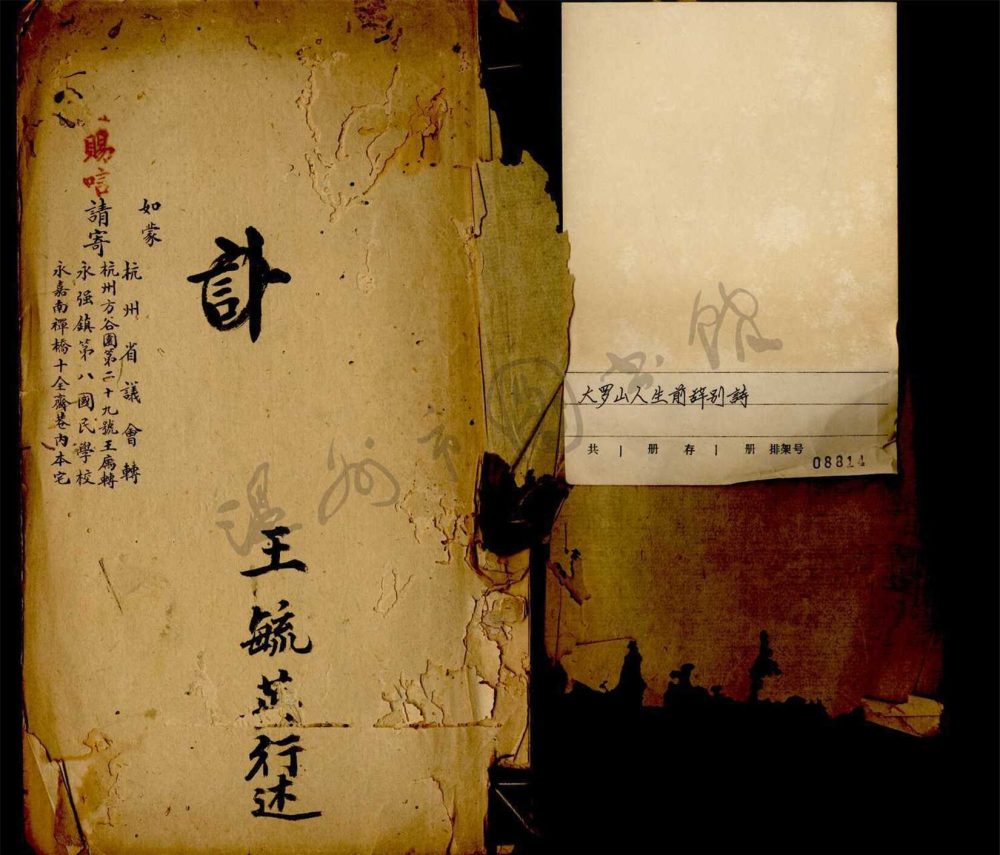 大罗山人生前辞别詩
共 1 册 存 1 册 排架号
08814
訃
王毓英行述
如蒙
賜唁
請寄
杭州省議會轉
杭州方谷園第二十九號王轉
永强鎮第八國民學校
永嘉南禪橋十全齋巷內本宅
温州市圖书館